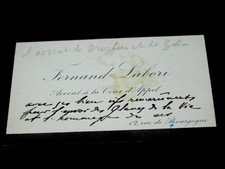 l'avocat de Dreyfus et de Zola
Fernand Labori
Avocat à la Cour d'Appel
avec ses bien vifs remerciements
pour l'envoi des de la Vie
et l'hommage de ses
12, rue de Bourgogne